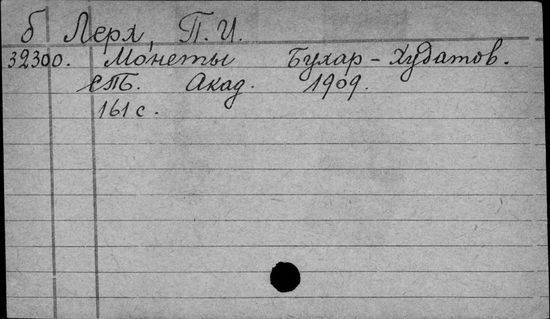 б Лерх, П. И.
32300. Монеты Бухар-Худатов.
СПБ. Акад. 1909.
161 с.